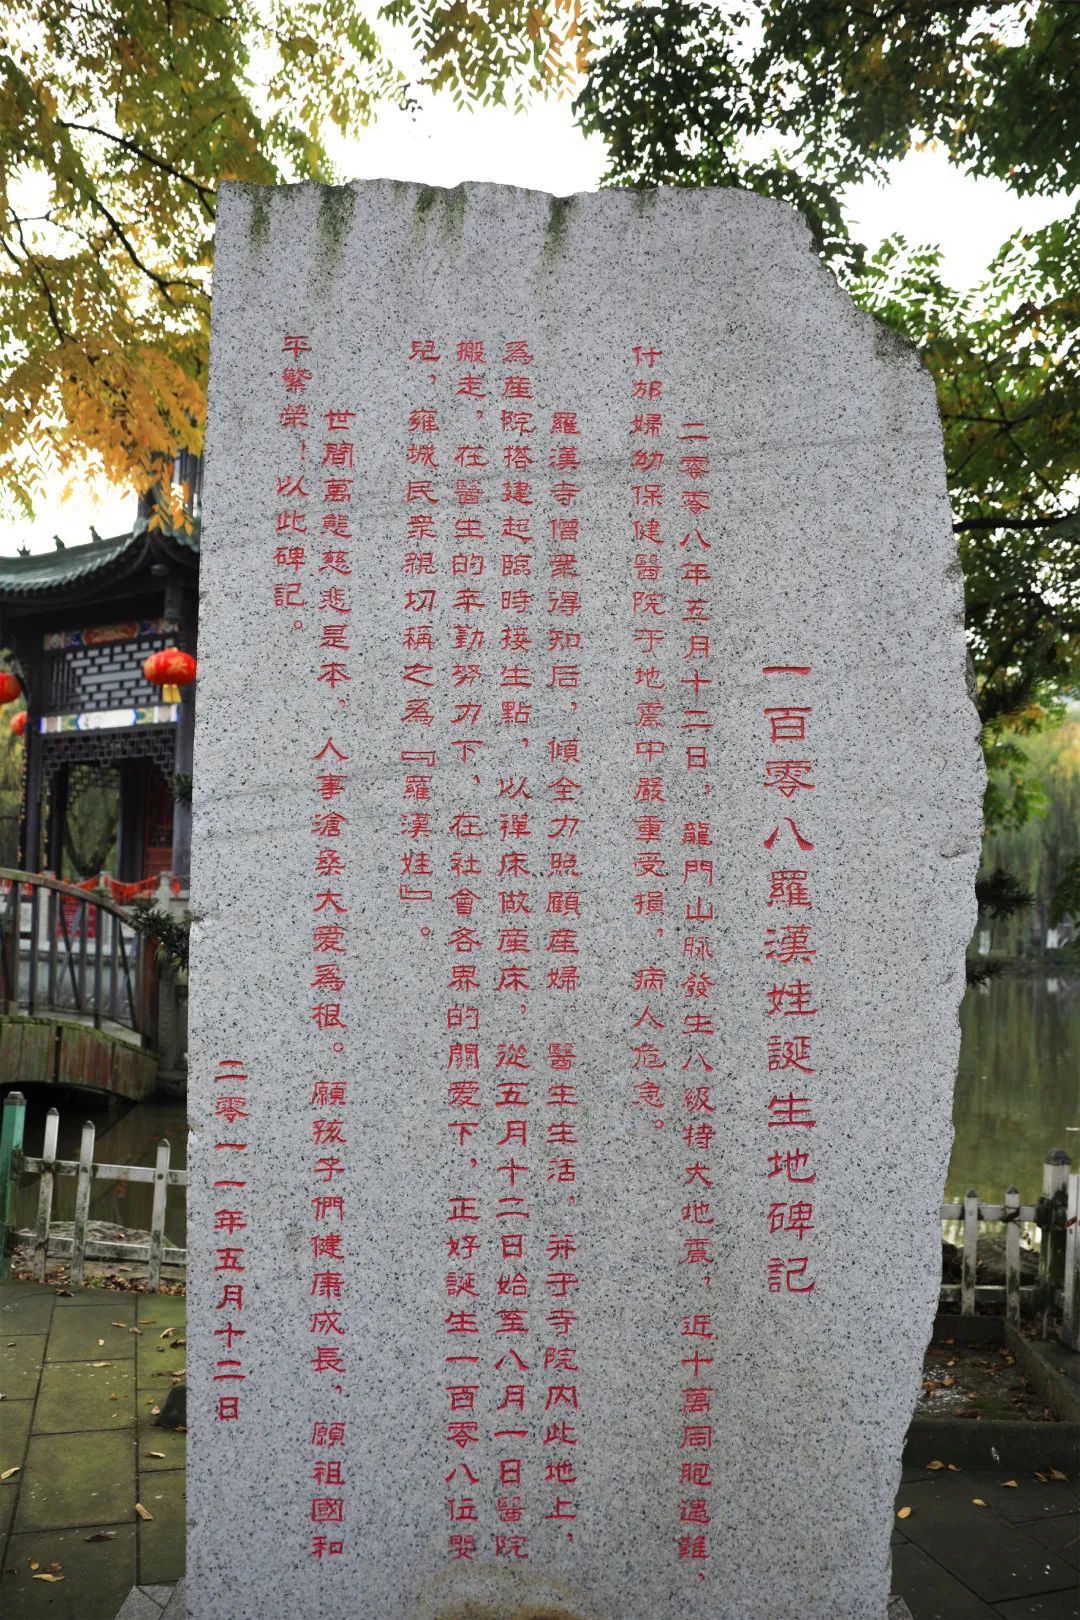 一百零八羅漢娃誕生地碑記
二零零八年五月十二日，龍門山脉發生八級特大地震，近十萬同胞遇難，
什邡婦幼保健醫院于地震中嚴重受損，病人危急。
羅漢寺僧衆得知后，傾全力照顧産婦　醫生生活，并于寺院内此地上，
爲産院搭建起臨時接生點，以禪床做産床，從五月十二日始至八月一日醫院
搬走，在醫生的辛勤努力下，在社會各界的關爱下，正好誕生一百零八位嬰
兒，雍城民衆親切稱之爲『羅漢娃』。
世間萬態慈悲是本，人事滄桑大愛爲根。願孩子們健康成長，願祖國和
平繁榮！以此碑記。
二零一一年五月十二日